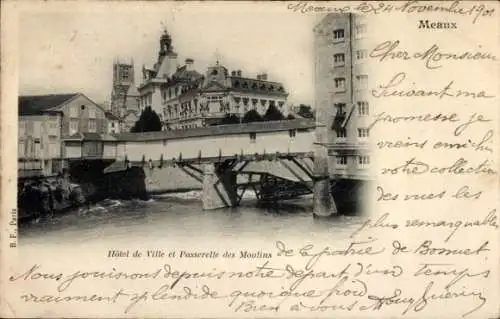 Meaux 24 Novembre 1901
MEAUX
Cher Monsieur
Suivant ma
promesse je
viens enrichir
votre collection
des vues les
plus remarquables
de la patrie de Bossuet
Hôtel de Ville et Passerelle des Moulins
B. F., Paris
Nous jouissons depuis notre départ d'un temps
vraiment splendide quoique froid.
Bien à vous